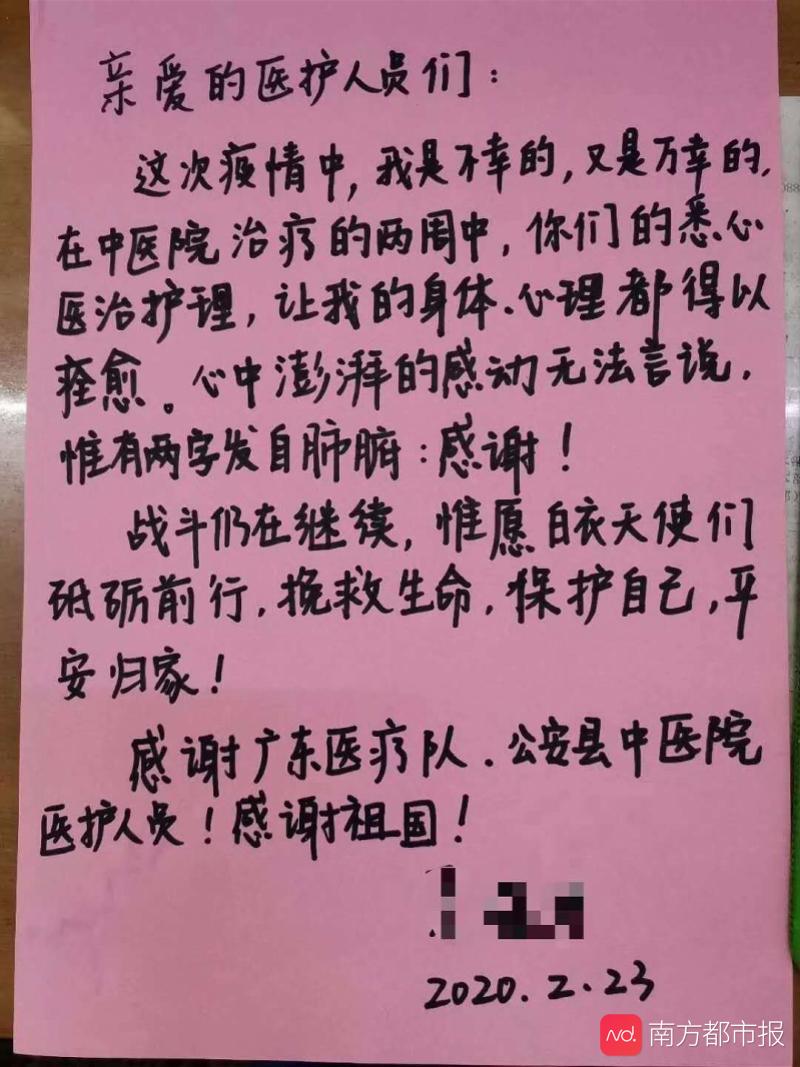 亲爱的医护人员们:
这次疫情中,我是不幸的,又是万幸的,
在中医院治疗的两周中,你们的悉心
医治护理,让我的身体、心理都得以
痊愈。心中澎湃的感动无法言说,
惟有两字发自肺腑:感谢!
战斗仍在继续,惟愿白衣天使们
砥砺前行,挽救生命,保护自己,平
安归家!
感谢广东医疗队、公安县中医院
医护人员!感谢祖国!
2020.2.23
nd. 南方都市报